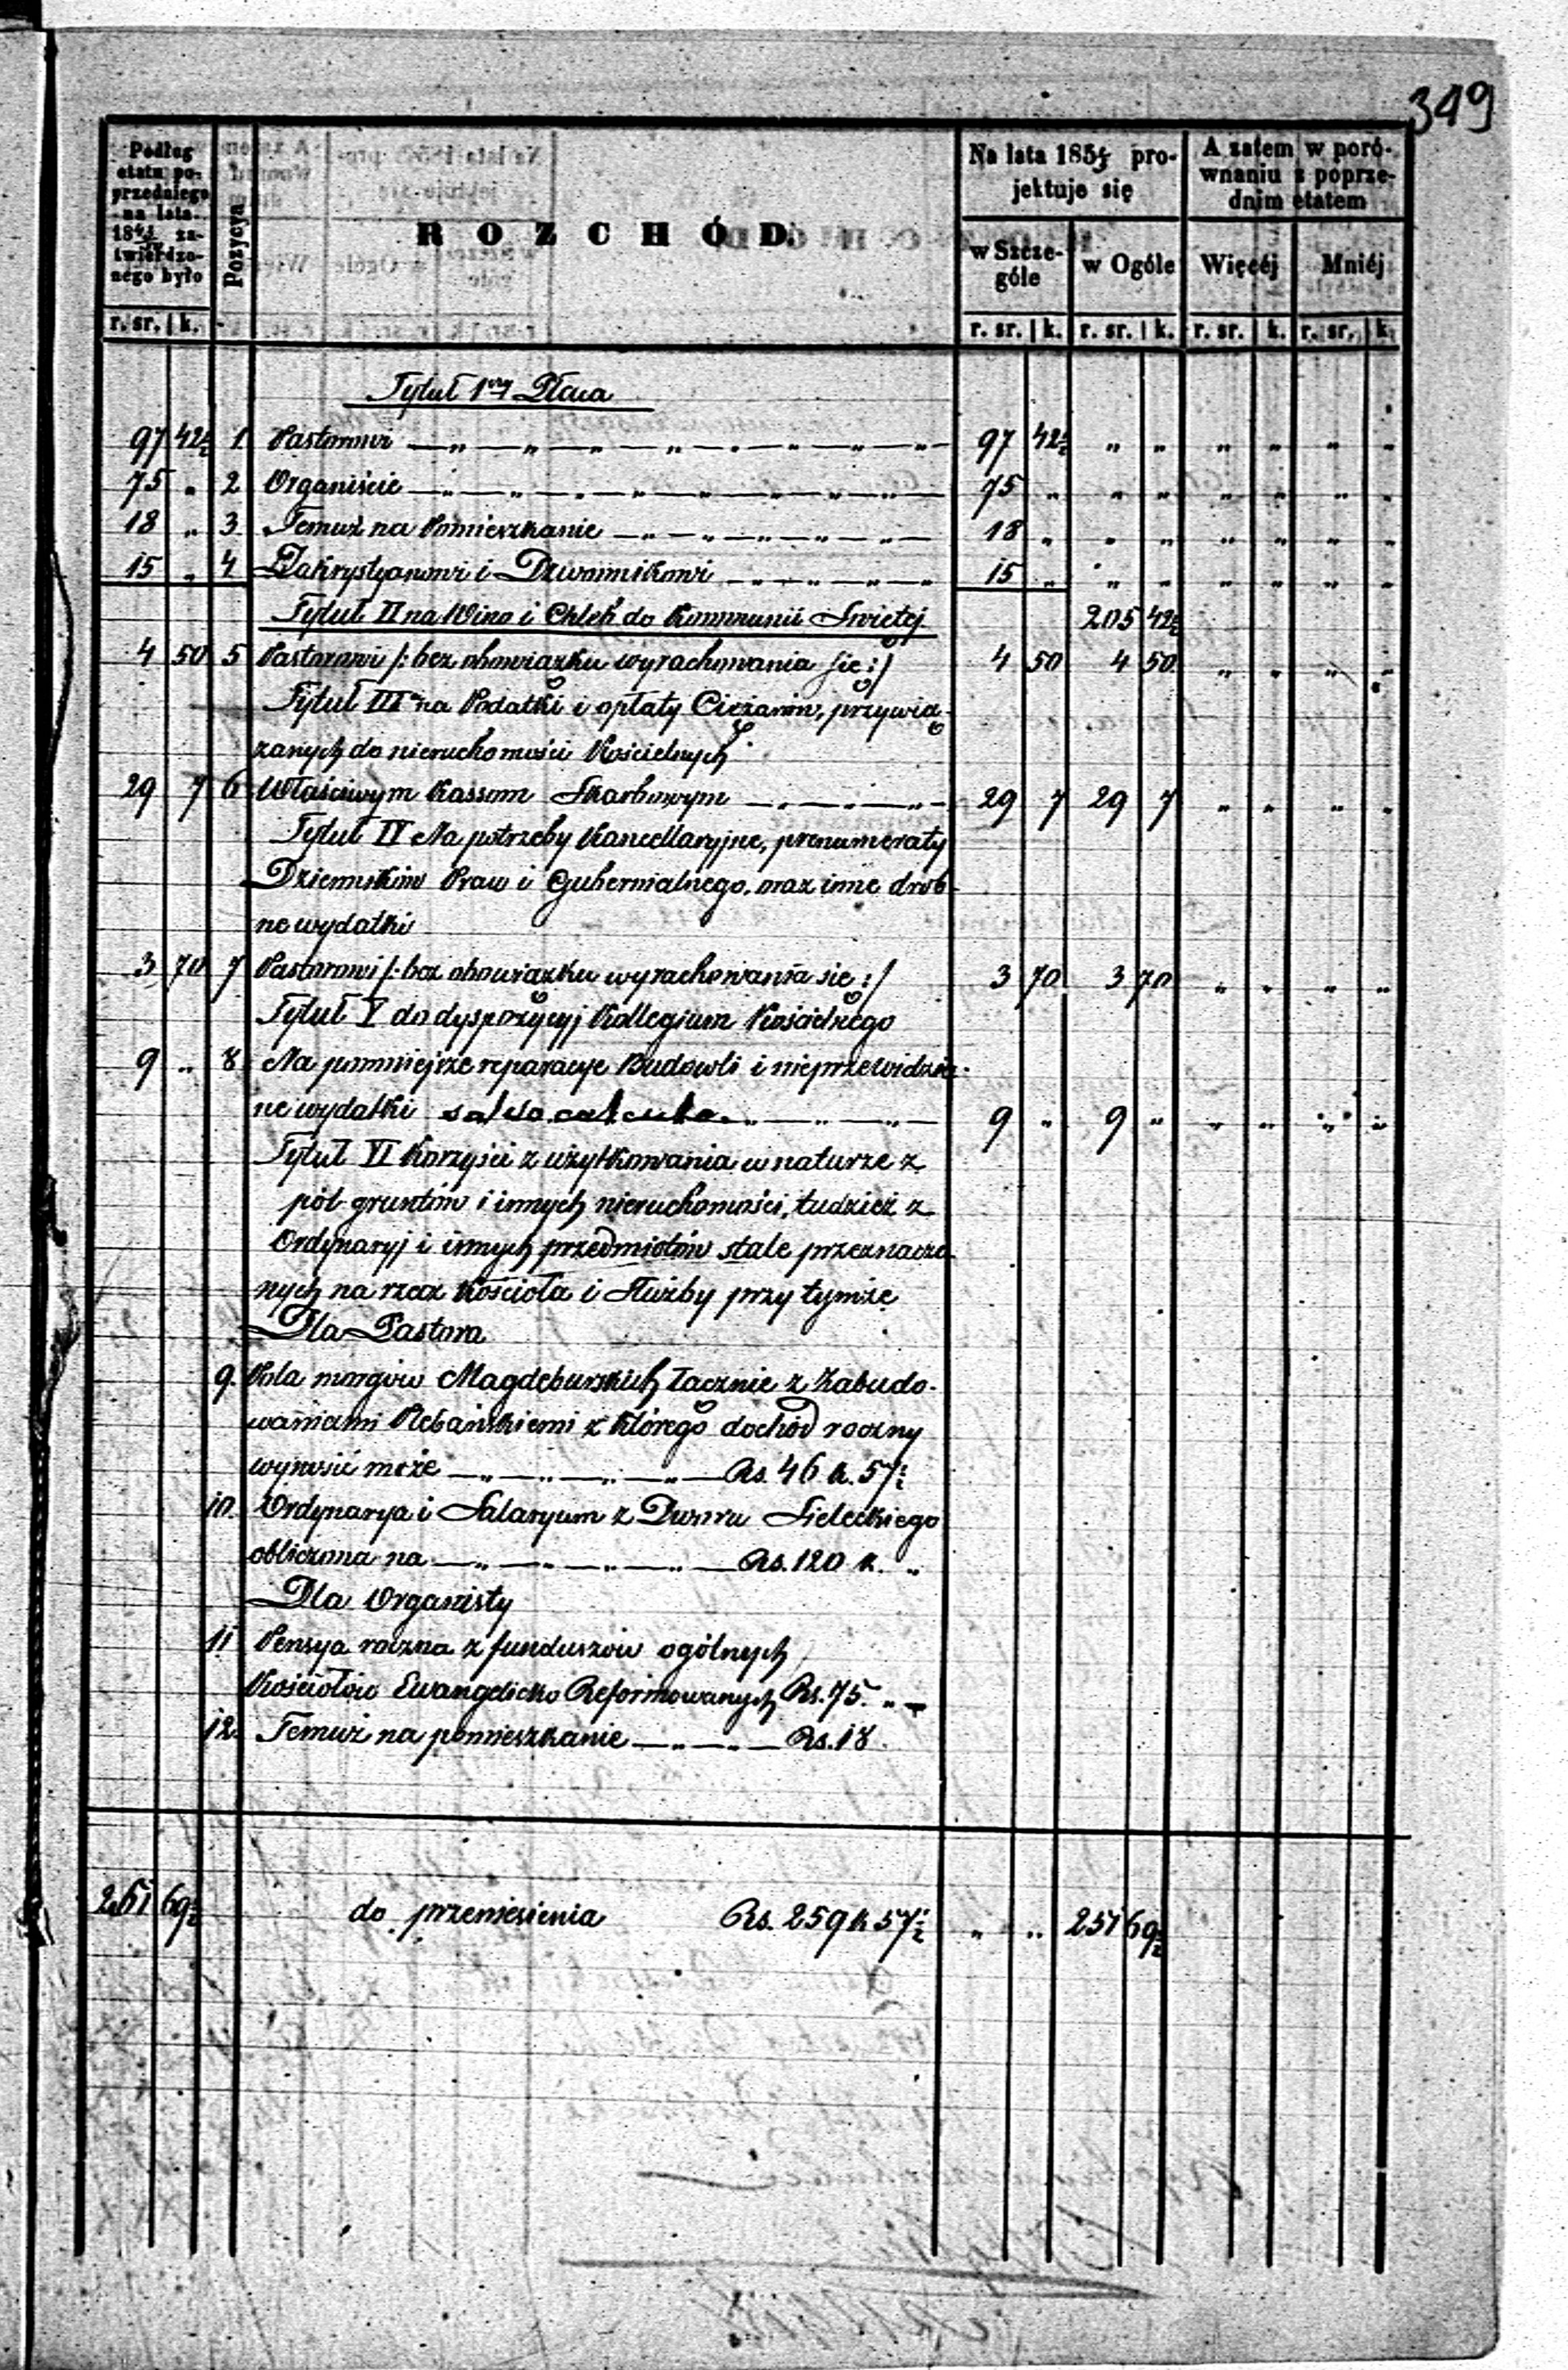 349
Podług etatu poprzedniego na lata 18 zatwierdzonego było
Pozycya
ROZCHÓD.
Na lata 185 projektuje się
A zatem w porównaniu z poprzednim etatem
w Szczególe
w Ogóle
Więcéj
Mniéj
r. sr. k. r. sr. k. r. sr. k. r. sr. k. r. sr. k.
Tytuł 1wszy Płaca
97 42½ 1. Pastorowi — „ — „ — „ — „ — „ — „ — „ — 97 42½ „ „ „ „ „ „
75 „ 2 Organiście — „ — „ — „ — „ — „ — „ — „ — 75 „ „ „ „ „ „ „
18 „ 3 Temuż na Pomieszkanie — „ — „ — „ — „ — „ — 18 „ „ „ „ „ „ „
15 „ 4 Zakrystyanowi i Dzwonnikowi — „ — „ — „ — „ — 15 „ „ „ „ „ „ „
Tytuł II na Wino i Chleb do Kommunii Swiętej 205 42½
4 50 5 Pastorowi /: bez obowiązku wyrachowania się :/ 4 50 4 50 „ „ „ „
Tytuł III na Podatki i opłaty Ciężarów, przywią-
zanych do nieruchomości Kościelnych
29 7 6 Właściwym Kassom Skarbowym — „ — „ — „ — 29 7 29 7 „ „ „ „
Tytuł IV Na potrzeby Kancellaryjne, prenumeraty
Dzienników Praw i Gubernialnego, oraz inne drob-
ne wydatki
3 70 7 Pastorowi /: bez obowiązku wyrachowania się :/ 3 70 3 70 „ „ „ „
Tytuł V do dyspozycyj Kollegium Kościelnego
9 „ 8 Na pomniejsze reparacye Budowli i nieprzewidzia-
ne wydatki salvo calculo — „ — „ — „ — 9 „ 9 „ „ „ „ „
Tytuł VI Korzyści z użytkowania w naturze z
pól gruntów i innych nieruchomości, tudzież z
Ordynaryj i innych przedmiotów stale przeznaczo-
nych na rzecz Kościoła i Służby przy tymże
Dla Pastora
9. Pola morgów Magdeburskich łącznie z Zabudo-
waniami Plebańskiemi z którego dochód roczny
wynosić może — „ — „ — „ — „ — Rs. 46 k. 57½
10. Ordynarya i Salaryum z Dworu Sieleckiego
obliczona na — „ — „ — „ — „ — Rs. 120 k. „
Dla Organisty
11 Pensya roczna z funduszów ogólnych
Kościołów Ewangelicko Reformowanych Rs. 75. „ —
12. Temuż na pomieszkanie — „ — „ — Rs. 18.
251 69½ do przeniesienia Rs. 259 k 57½ „ „ 251 69½